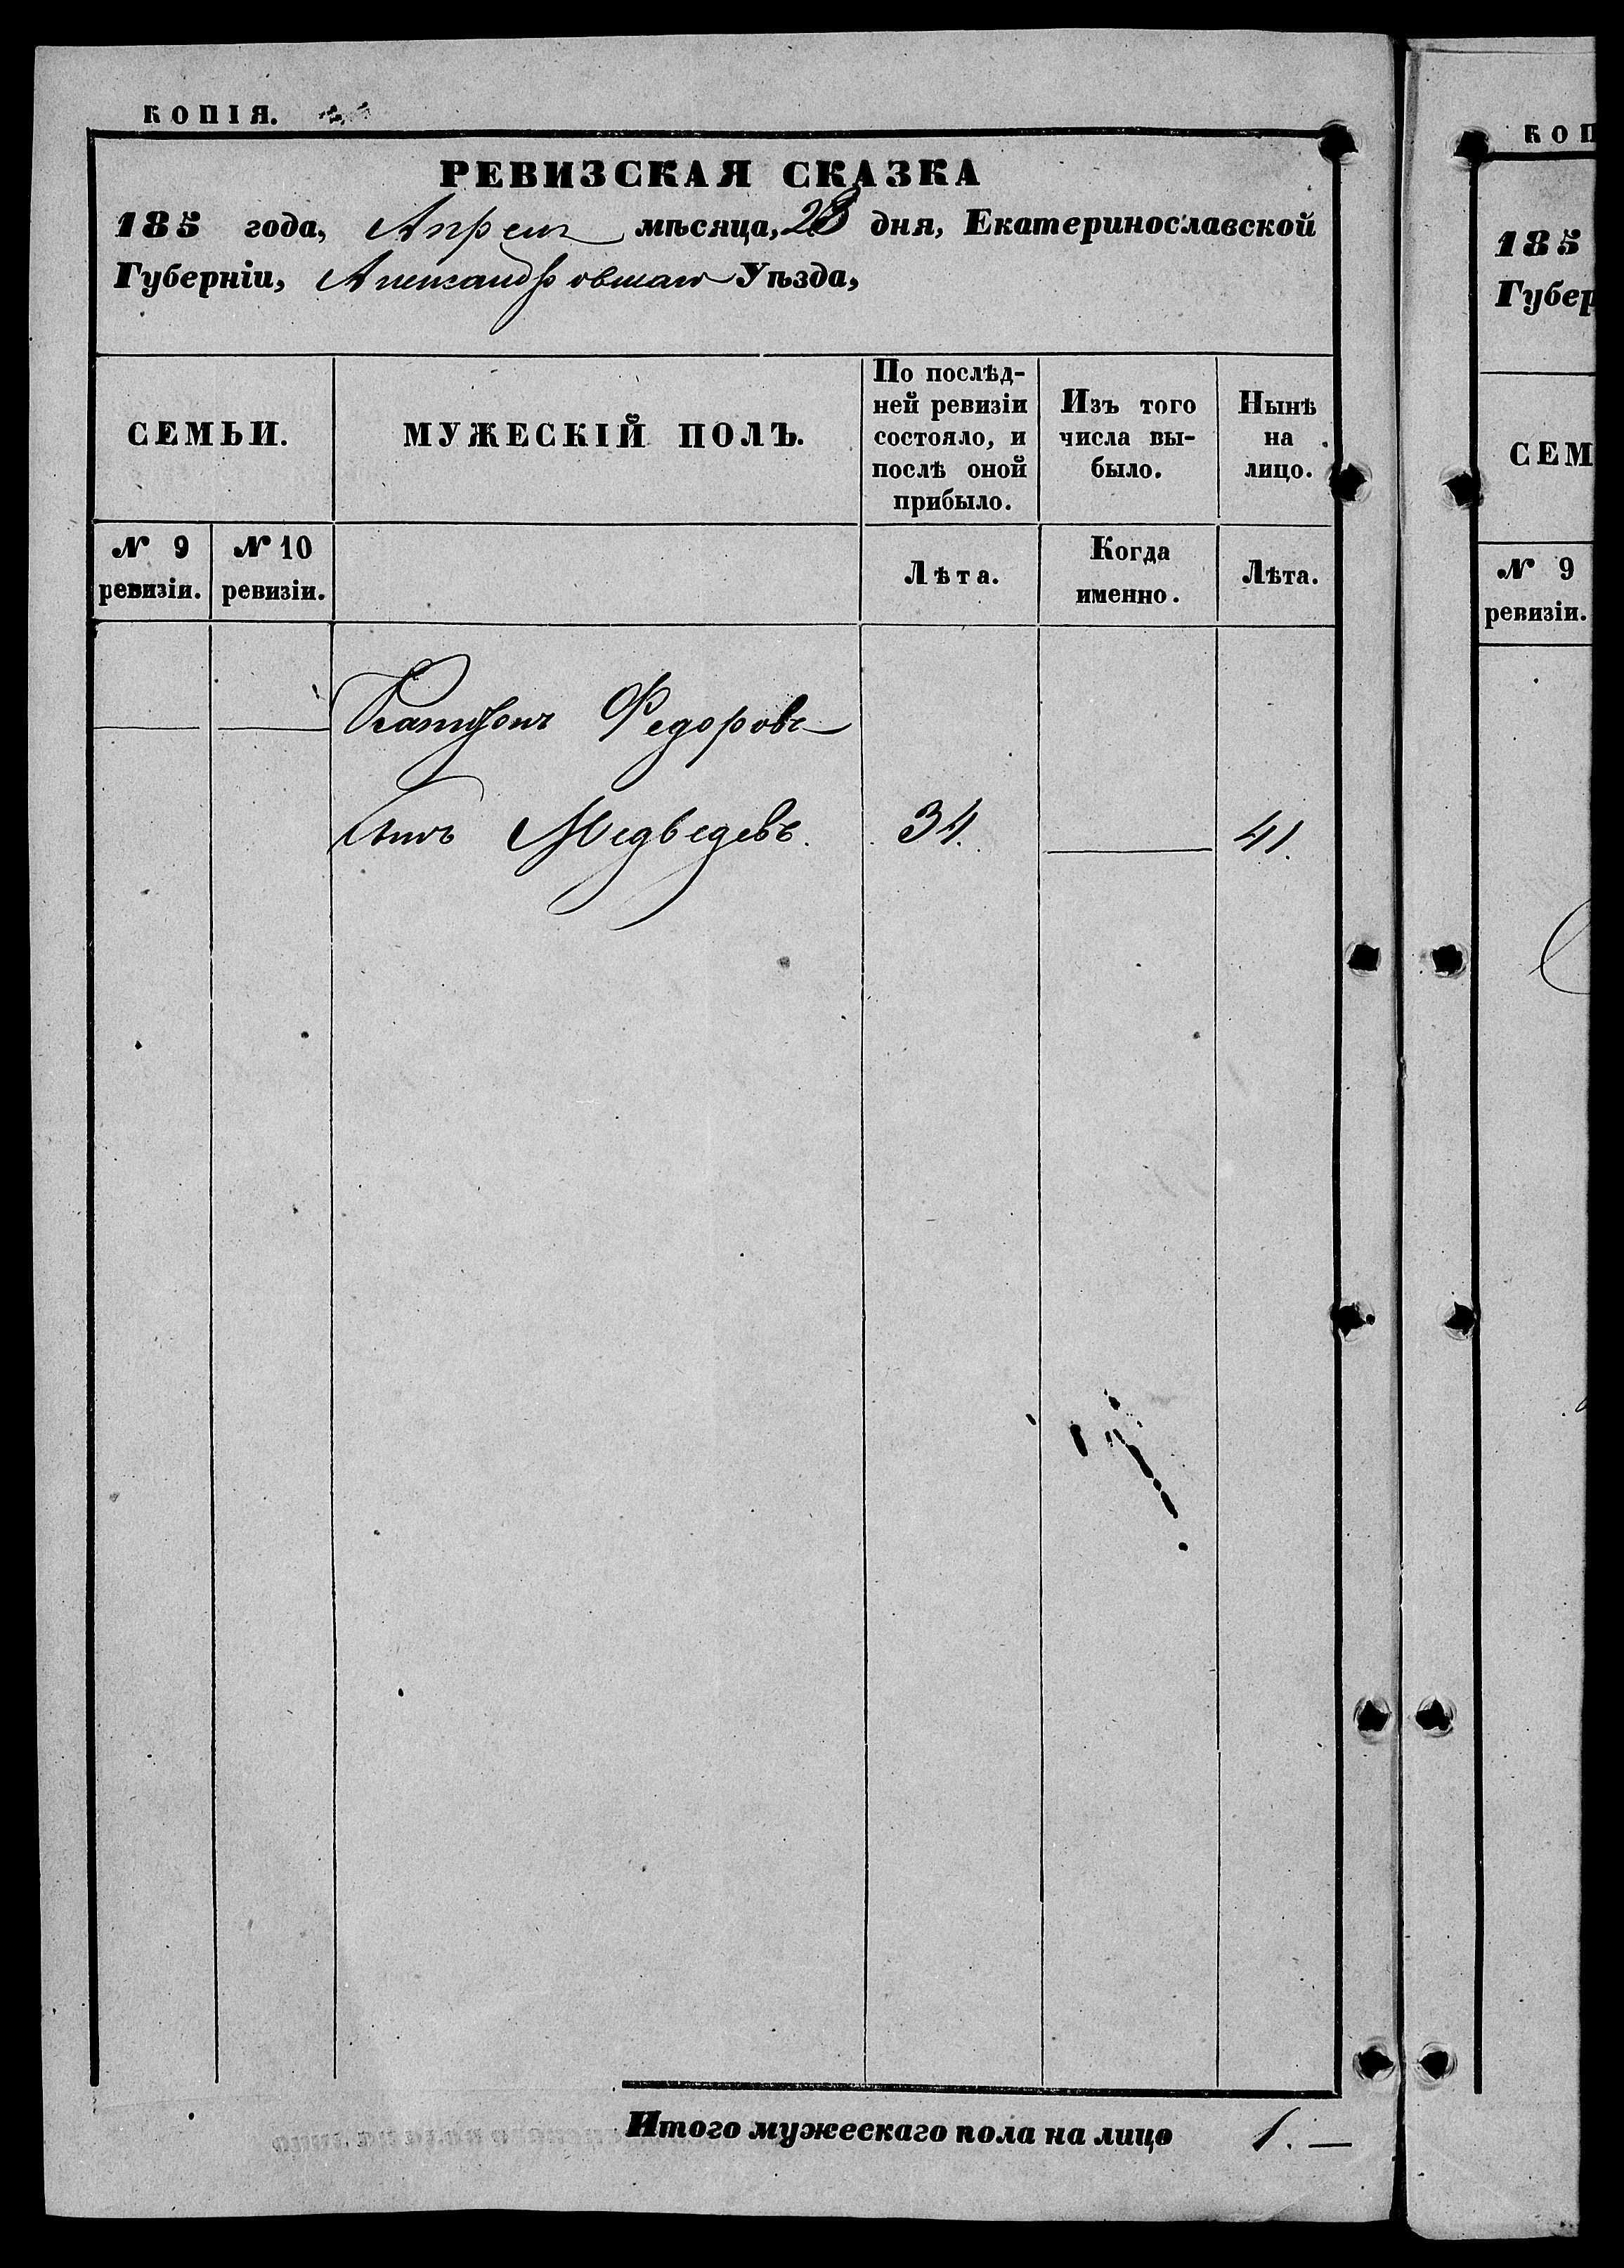 КОПІЯ.
РЕВИЗСКАЯ СКАЗКА
185 года, Апреля мѣсяца, 28 дня, Екатеринославской
Губерніи, Александровскаго Уѣзда,
СЕМЬИ.
МУЖЕСКІЙ ПОЛЪ.
По послѣд-
ней ревизіи
состояло, и
послѣ оной
прибыло.
Изъ того
числа вы-
было.
Нынѣ
на
лицо.
№ 9
ревизіи.
№ 10
ревизіи.
Лѣта.
Когда
именно.
Лѣта.
Федоровъ
Медведевъ. 34. 41.
Итого мужескаго пола на лицо 1. —
КОП
185
Губер
СЕМ
№ 9
ревизіи.